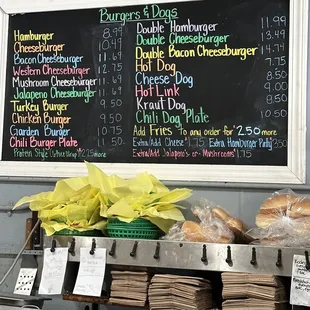 Burgers & Dogs
Hamburger 8.99
Cheeseburger 10.49
Bacon Cheeseburger 11.69
Western Cheeseburger 12.75
Mushroom Cheeseburger 11.69
Jalapeno Cheeseburger 11.69
Turkey Burger 9.50
Chicken Burger 9.50
Garden Burger 10.50
Chili Burger Plate 11.10
Protein Style
Double Hamburger 11.99
Double Cheeseburger 13.49
Double Bacon Cheeseburger 14.99
Hot Dog 7.75
Cheese Dog 8.50
Hot Link 9.00
Kraut Dog 8.50
Chili Dog Plate 10.50
Add Fries to any order for $2.50 more
Extra/Add Cheese 1.75 Extra Hamburger Patty 3.50
Extra/Add Jalapeno's or Mushrooms 1.75